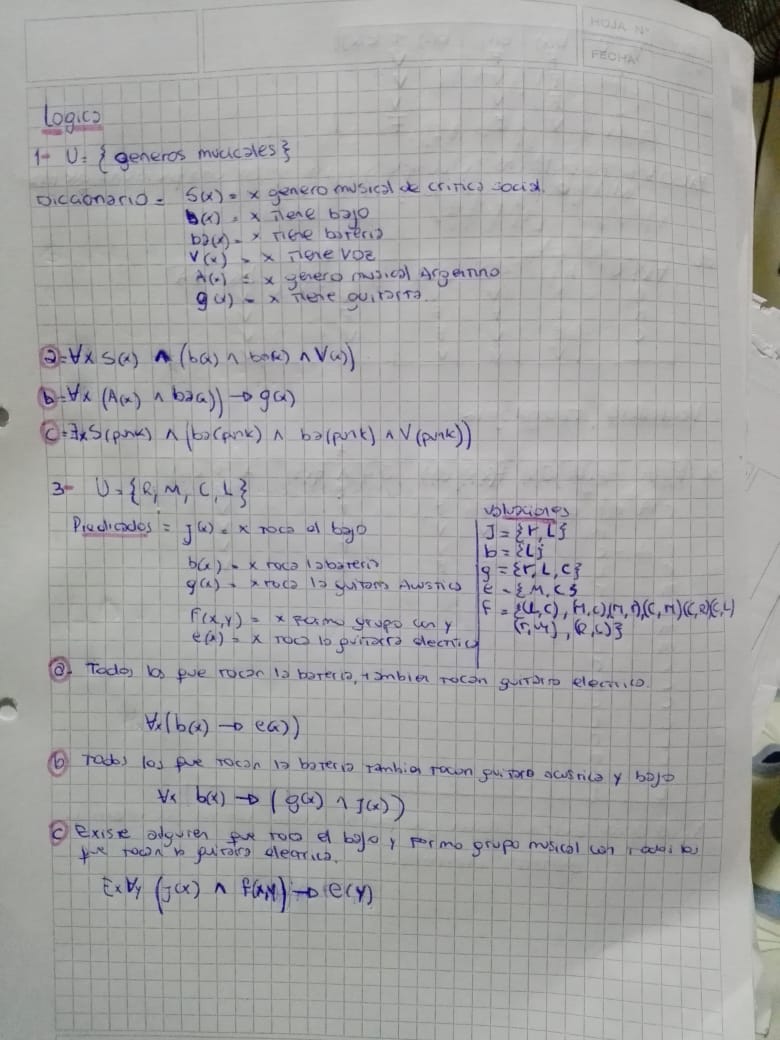 HOJA N°
FECHA
Logica
1- U = { generos mucicales}
Diccionario = S(x) = x genero musical de critica social.
b(x) = x tiene bajo
ba(x) = x tiene bateria
V(x) = x tiene voz
A(x) = x genero musical Argentino
g(x) = x tiene guitarra.
a = ∀x S(x) ∧ (b(x) ∧ ba(x) ∧ V(x))
b = ∀x (A(x) ∧ ba(x)) → g(x)
c = ∃x S(punk) ∧ (ba(punk) ∧ ba(punk) ∧ V(punk))
3- U = {R, M, C, L}
Predicados = J(x) = x toca el bajo
b(x) = x toca la bateria
g(x) = x toca la guitarra Acustica
F(x,y) = x formo grupo con y
e(x) = x toca la guitarra electrica
valuaciones
J = {r, L}
b = {L}
g = {r, L, C}
e = {M, C}
F = {(L,C), (M,C)(M,R)(C,M)(C,R)(C,L)
(r,M), (R,C)}
a Todos los que tocan la bateria, tambien tocan guitarra electrica.
∀x(b(x) → e(x))
b Todos los que tocan la bateria tambien tocan guitarra acustica y bajo
∀x b(x) → (g(x) ∧ J(x))
c existe alguien que toca el bajo y formo grupo musical con todos los
que tocan la guitarra electrica.
Ex ∀y (J(x) ∧ F(x,y)) → e(y)